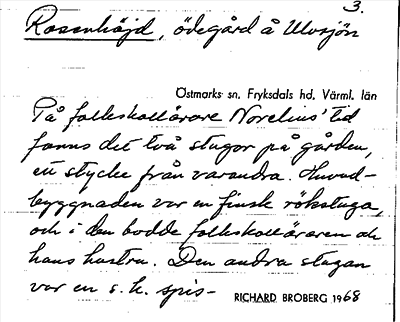 3.
Rosenhöjd, ödegård å Ulvsjön
Östmarks sn. Fryksdals hd. Värml. län
På folkskollärare Norelius' tid
fanns det två stugor på gården,
ett stycke från varandra. Huvud-
byggnaden var en finsk rökstuga,
och i den bodde folkskolläraren och
hans hustru. Den andra stugan
var en s. k. spis-
RICHARD BROBERG 1968